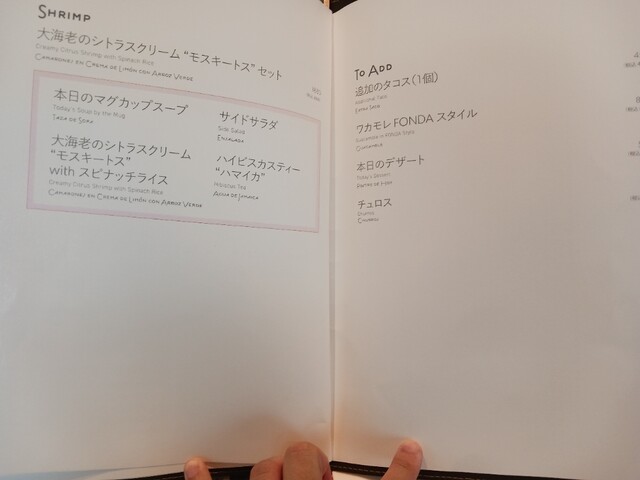 SHRIMP
大海老のシトラスクリーム “モスキートス” セット
Creamy Citrus Shrimp with Spinach Rice
CAMARONES EN CREMA DE LIMÓN CON ARROZ VERDE
本日のマグカップスープ
Today's Soup by the Mug
TAZA DE SOPA
サイドサラダ
Side Salad
ENSALADA
大海老のシトラスクリーム
“モスキートス”
with スピナッチライス
Creamy Citrus Shrimp with Spinach Rice
CAMARONES EN CREMA DE LIMÓN CON ARROZ VERDE
ハイビスカスティー
“ハマイカ”
Hibiscus Tea
AGUA DE JAMAICA
TO ADD
追加のタコス(1個)
Additional Taco
EXTRA TACO
ワカモレ FONDA スタイル
Guacamole in FONDA Style
GUACAMOLE
本日のデザート
Today's Dessert
POSTRE DE HOY
チュロス
Churros
CHURROS